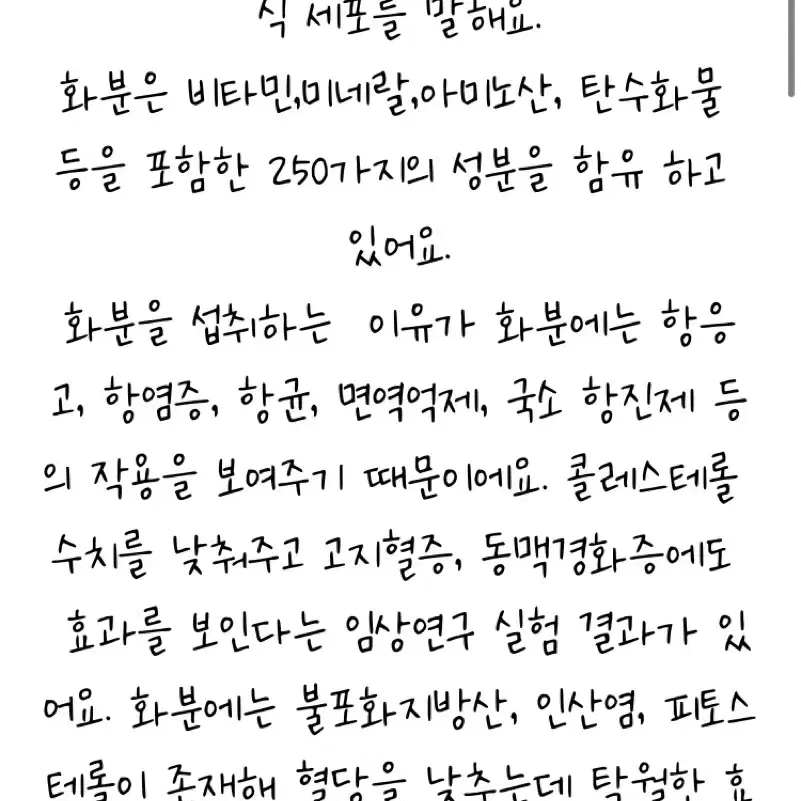 식 세포를 말해요.
화분은 비타민,미네랄,아미노산, 탄수화물
등을 포함한 250가지의 성분을 함유 하고
있어요.
화분을 섭취하는 이유가 화분에는 항응
고, 항염증, 항균, 면역억제, 국소 항진제 등
의 작용을 보여주기 때문이에요. 콜레스테롤
수치를 낮춰주고 고지혈증, 동맥경화증에도
효과를 보인다는 임상연구 실험 결과가 있
어요. 화분에는 불포화지방산, 인산염, 피토스
테롤이 존재해 혈당을 낮추는데 탁월한 효